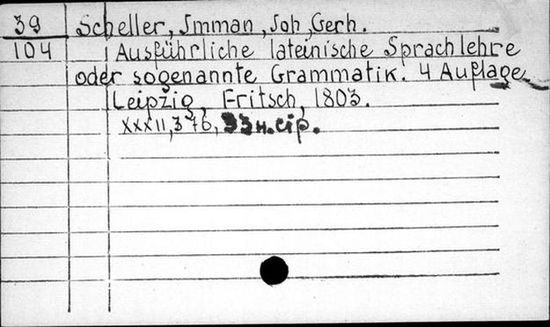 39 Scheller, Imman, Joh, Gerh.
104 Ausführliche lateinische Sprachlehre
oder sogenannte Grammatik. 4 Auflage
Leipzig, Fritsch, 1803.
XXXII, 376,